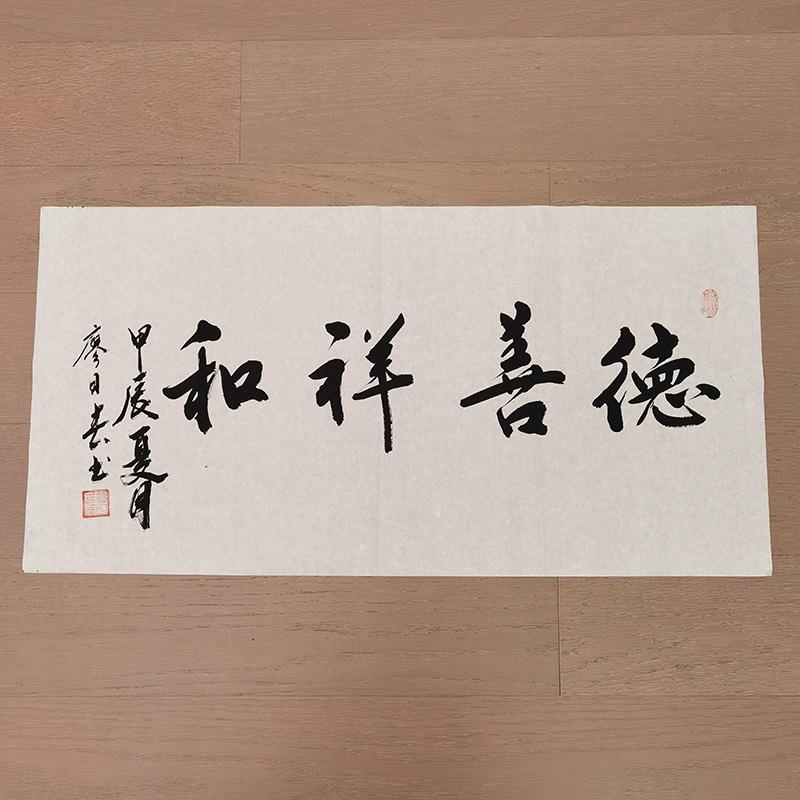 德善祥和
甲辰夏月
廖日昌书